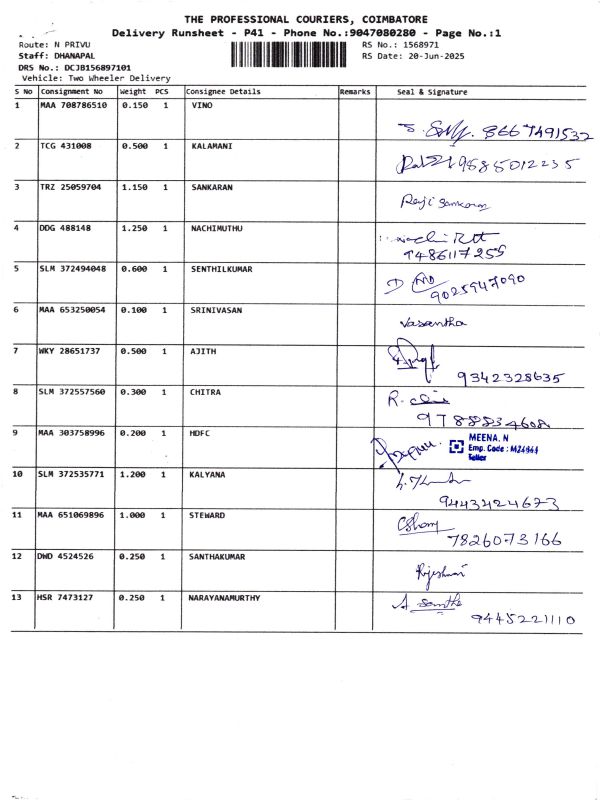 THE PROFESSIONAL COURIERS, COIMBATORE
Delivery Runsheet - P41 - Phone No.:9047080280 - Page No.:1
Route: N PRIVU RS No.: 1568971
Staff: DHANAPAL RS Date: 20-Jun-2025
DRS No.: DCJB156897101
Vehicle: Two Wheeler Delivery
S No Consignment No Weight PCS Consignee Details Remarks Seal & Signature
1 MAA 708786510 0.150 1 VINO
8667491532
2 TCG 431008 0.500 1 KALAMANI
9585012235
3 TRZ 25059704 1.150 1 SANKARAN
Sankaran
4 DDG 488148 1.250 1 NACHIMUTHU
9486117255
5 SLM 372494048 0.600 1 SENTHILKUMAR
9025947090
6 MAA 653250054 0.100 1 SRINIVASAN
Vasantha
7 WKY 28651737 0.500 1 AJITH
9342328635
8 SLM 372557560 0.300 1 CHITRA
R.
9788834608
9 MAA 303758996 0.200 1 HDFC
MEENA. N
Emp. Code : M24964
Teller
10 SLM 372535771 1.200 1 KALYANA
9443424673
11 MAA 651069896 1.000 1 STEWARD
7826073166
12 DWD 4524526 0.250 1 SANTHAKUMAR
Rajeshwari
13 HSR 7473127 0.250 1 NARAYANAMURTHY
9445221110